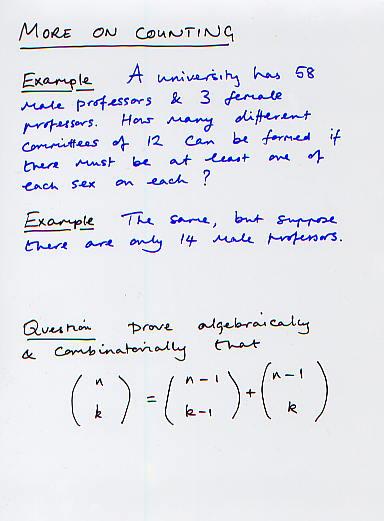 MORE ON COUNTING
Example A university has 58
male professors & 3 female
professors. How many different
committees of 12 can be formed if
there must be at least one of
each sex on each ?
Example The same, but suppose
there are only 14 male professors.
Question prove algebraically
& combinatorially that
(n k) = (n-1 k-1) + (n-1 k)